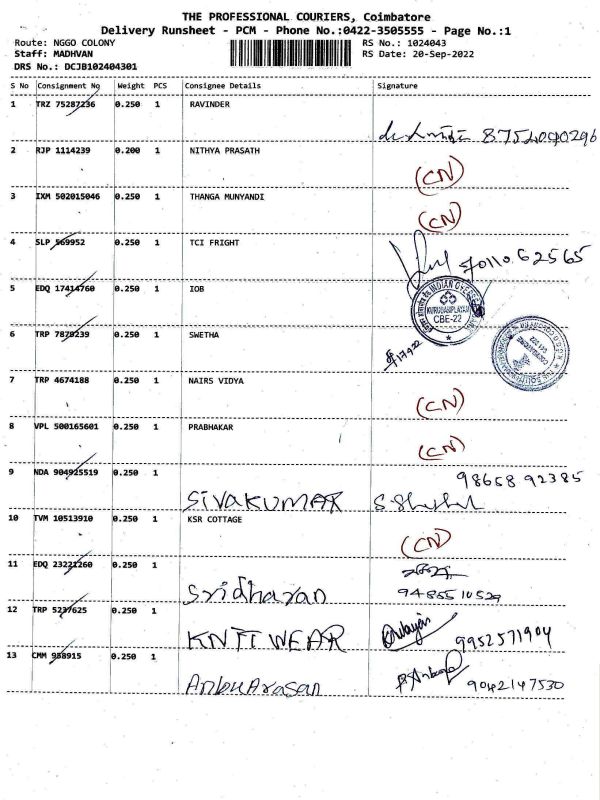 THE PROFESSIONAL COURIERS, Coimbatore
Delivery Runsheet - PCM - Phone No.:0422-3505555 - Page No.:1
Route: NGGO COLONY RS No.: 1024043
Staff: MADHVAN RS Date: 20-Sep-2022
DRS No.: DCJB102404301
S No Consignment No Weight PCS Consignee Details Signature
1 TRZ 75287236 0.250 1 RAVINDER
8754090296
2 RJP 1114239 0.200 1 NITHYA PRASATH
(CN)
3 IXM 502015046 0.250 1 THANGA MUNYANDI
(CN)
4 SLP 569952 0.250 1 TCI FRIGHT
7011062565
5 EDQ 17414760 0.250 1 IOB
INDIAN OVERSEAS BANK
KURUDAMPLAYAM
CBE-22
6 TRP 7879239 0.250 1 SWETHA
7 TRP 4674188 0.250 1 NAIRS VIDYA
(CN)
8 VPL 500165601 0.250 1 PRABHAKAR
(CN)
9 NDA 904925519 0.250 1
98658 92385
SIVAKUMAR
10 TVM 10513910 0.250 1 KSR COTTAGE
(CN)
11 EDQ 23221260 0.250 1
Sridharan 9486510529
12 TRP 5237625 0.250 1
KNIT WEAR 9952571904
13 CMM 958915 0.250 1
AnbuArasan 9042147530